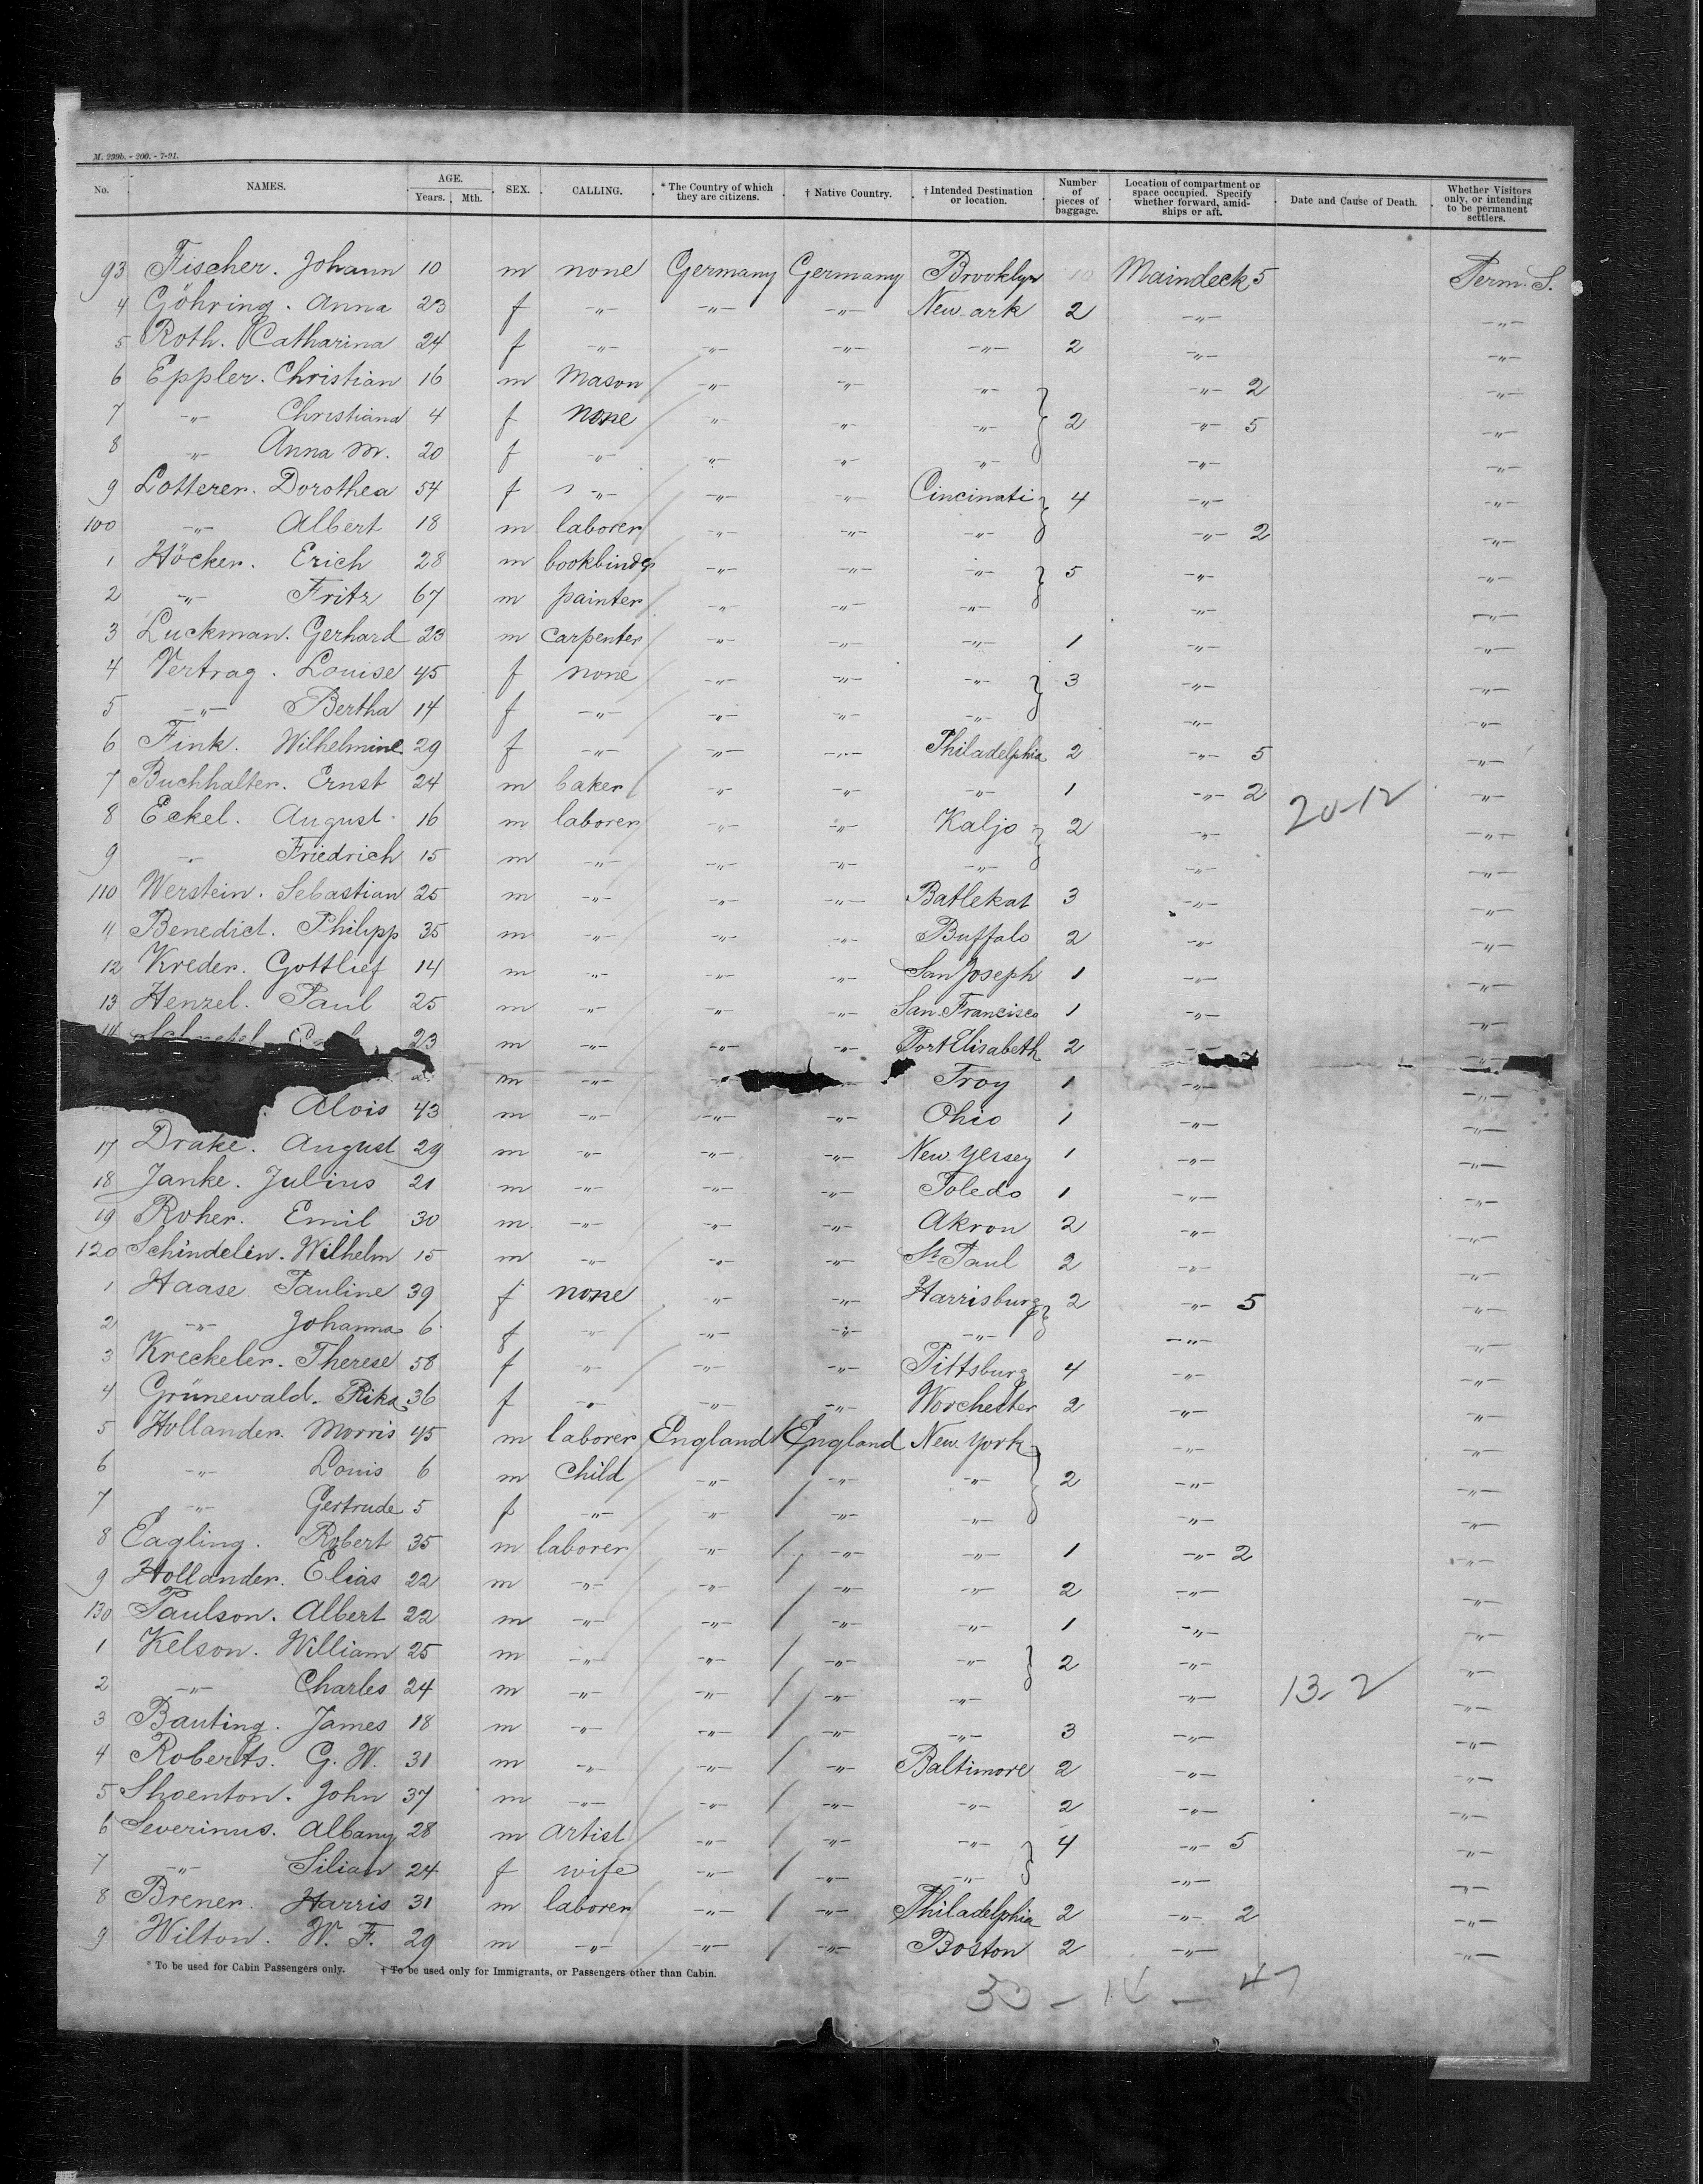 M. 299b. - 200. - 7-91.
No. NAMES. AGE. Years. Mth. SEX. CALLING. * The Country of which they are citizens. † Native Country. † Intended Destination or location. Number of pieces of baggage. Location of compartment or space occupied. Specify whether forward, amidships or aft. Date and Cause of Death. Whether Visitors only, or intending to be permanent settlers.
93 Fischer. Johann 10 m none Germany Germany Brooklyn 10 Maindeck 5 Perm. S.
4 Göhring. Anna 23 f -"- -"- -"- New-ark 2 -"- -"-
5 Roth. Catharina 24 f -"- -"- -"- -"- 2 -"- -"-
6 Eppler. Christian 16 m Mason -"- -"- -"- -"- 2 -"-
7 -"- Christiana 4 f none -"- -"- -"- 2 -"- 5 -"-
8 -"- Anna M. 20 f -"- -"- -"- -"- -"- -"-
9 Lotterer. Dorothea 54 f -"- -"- -"- Cincinati 4 -"- -"-
100 -"- Albert 18 m laborer -"- -"- -"- -"- 2 -"-
1 Höcker. Erich 28 m bookbinder -"- -"- -"- 5 -"- -"-
2 -"- Fritz 67 m painter -"- -"- -"- -"- -"-
3 Luckman. Gerhard 23 m carpenter -"- -"- -"- 1 -"- -"-
4 Vertrag. Louise 45 f none -"- -"- -"- 3 -"- -"-
5 -"- Bertha 14 f -"- -"- -"- -"- -"- -"-
6 Fink. Wilhelmine 29 f -"- -"- -"- Philadelphia 2 -"- 5 -"-
7 Buchhalter. Ernst 24 m baker -"- -"- -"- 1 -"- 2 20-12 -"-
8 Eckel. August 16 m laborer -"- -"- Kaljo 2 -"- -"-
9 -"- Friedrich 15 m -"- -"- -"- -"- -"- -"-
110 Werstein. Sebastian 25 m -"- -"- -"- Batlekat 3 -"- -"-
11 Benedict. Philipp 35 m -"- -"- -"- Buffalo 2 -"- -"-
12 Kreder. Gottlief 14 m -"- -"- -"- San Joseph 1 -"- -"-
13 Henzel. Paul 25 m -"- -"- -"- San-Francisco 1 -"- -"-
14 23 m -"- -"- -"- Port Elisabeth 2 -"- -"-
m -"- -"- -"- Troy 1 -"- -"-
Alois 43 m -"- -"- -"- Ohio 1 -"- -"-
17 Drake. August 29 m -"- -"- -"- New-Yersey 1 -"- -"-
18 Janke. Julius 21 m -"- -"- -"- Toledo 1 -"- -"-
19 Roher. Emil 30 m -"- -"- -"- Akron 2 -"- -"-
120 Schindelin. Wilhelm 15 m -"- -"- -"- St. Paul 2 -"- -"-
1 Haase Pauline 39 f none -"- -"- Harrisburg 2 -"- 5 -"-
2 -"- Johanna 6 f -"- -"- -"- -"- -"- -"-
3 Kreckeler. Therese 58 f -"- -"- -"- Pittsburg 4 -"- -"-
4 Grünewald. Rika 36 f -"- -"- -"- Worchester 2 -"- -"-
5 Hollander. Morris 45 m laborer England England New-York -"- -"-
6 -"- Louis 6 m Child -"- -"- -"- 2 -"- -"-
7 -"- Gertrude 5 f -"- -"- -"- -"- -"- -"-
8 Eagling. Robert 35 m laborer -"- -"- -"- 1 -"- 2 -"-
9 Hollander. Elias 22 m -"- -"- -"- -"- 2 -"- -"-
130 Paulson. Albert 22 m -"- -"- -"- -"- 1 -"- -"-
1 Kelson. William 25 m -"- -"- -"- -"- 2 -"- -"-
2 -"- Charles 24 m -"- -"- -"- -"- -"- 13-2 -"-
3 Bauting. James 18 m -"- -"- -"- -"- 3 -"- -"-
4 Roberts. G. W. 31 m -"- -"- -"- Baltimore 2 -"- -"-
5 Shoenton. John 37 m -"- -"- -"- -"- 2 -"- -"-
6 Severinus. Albany 28 m Artist -"- -"- -"- 4 -"- 5 -"-
7 -"- Silian 24 f wife -"- -"- -"- -"- -"-
8 Brener. Harris 31 m laborer -"- -"- Philadelphia 2 -"- 2 -"-
9 Wilton. W. F. 29 m -"- -"- -"- Boston 2 -"- -"-
* To be used for Cabin Passengers only. † To be used only for Immigrants, or Passengers other than Cabin.